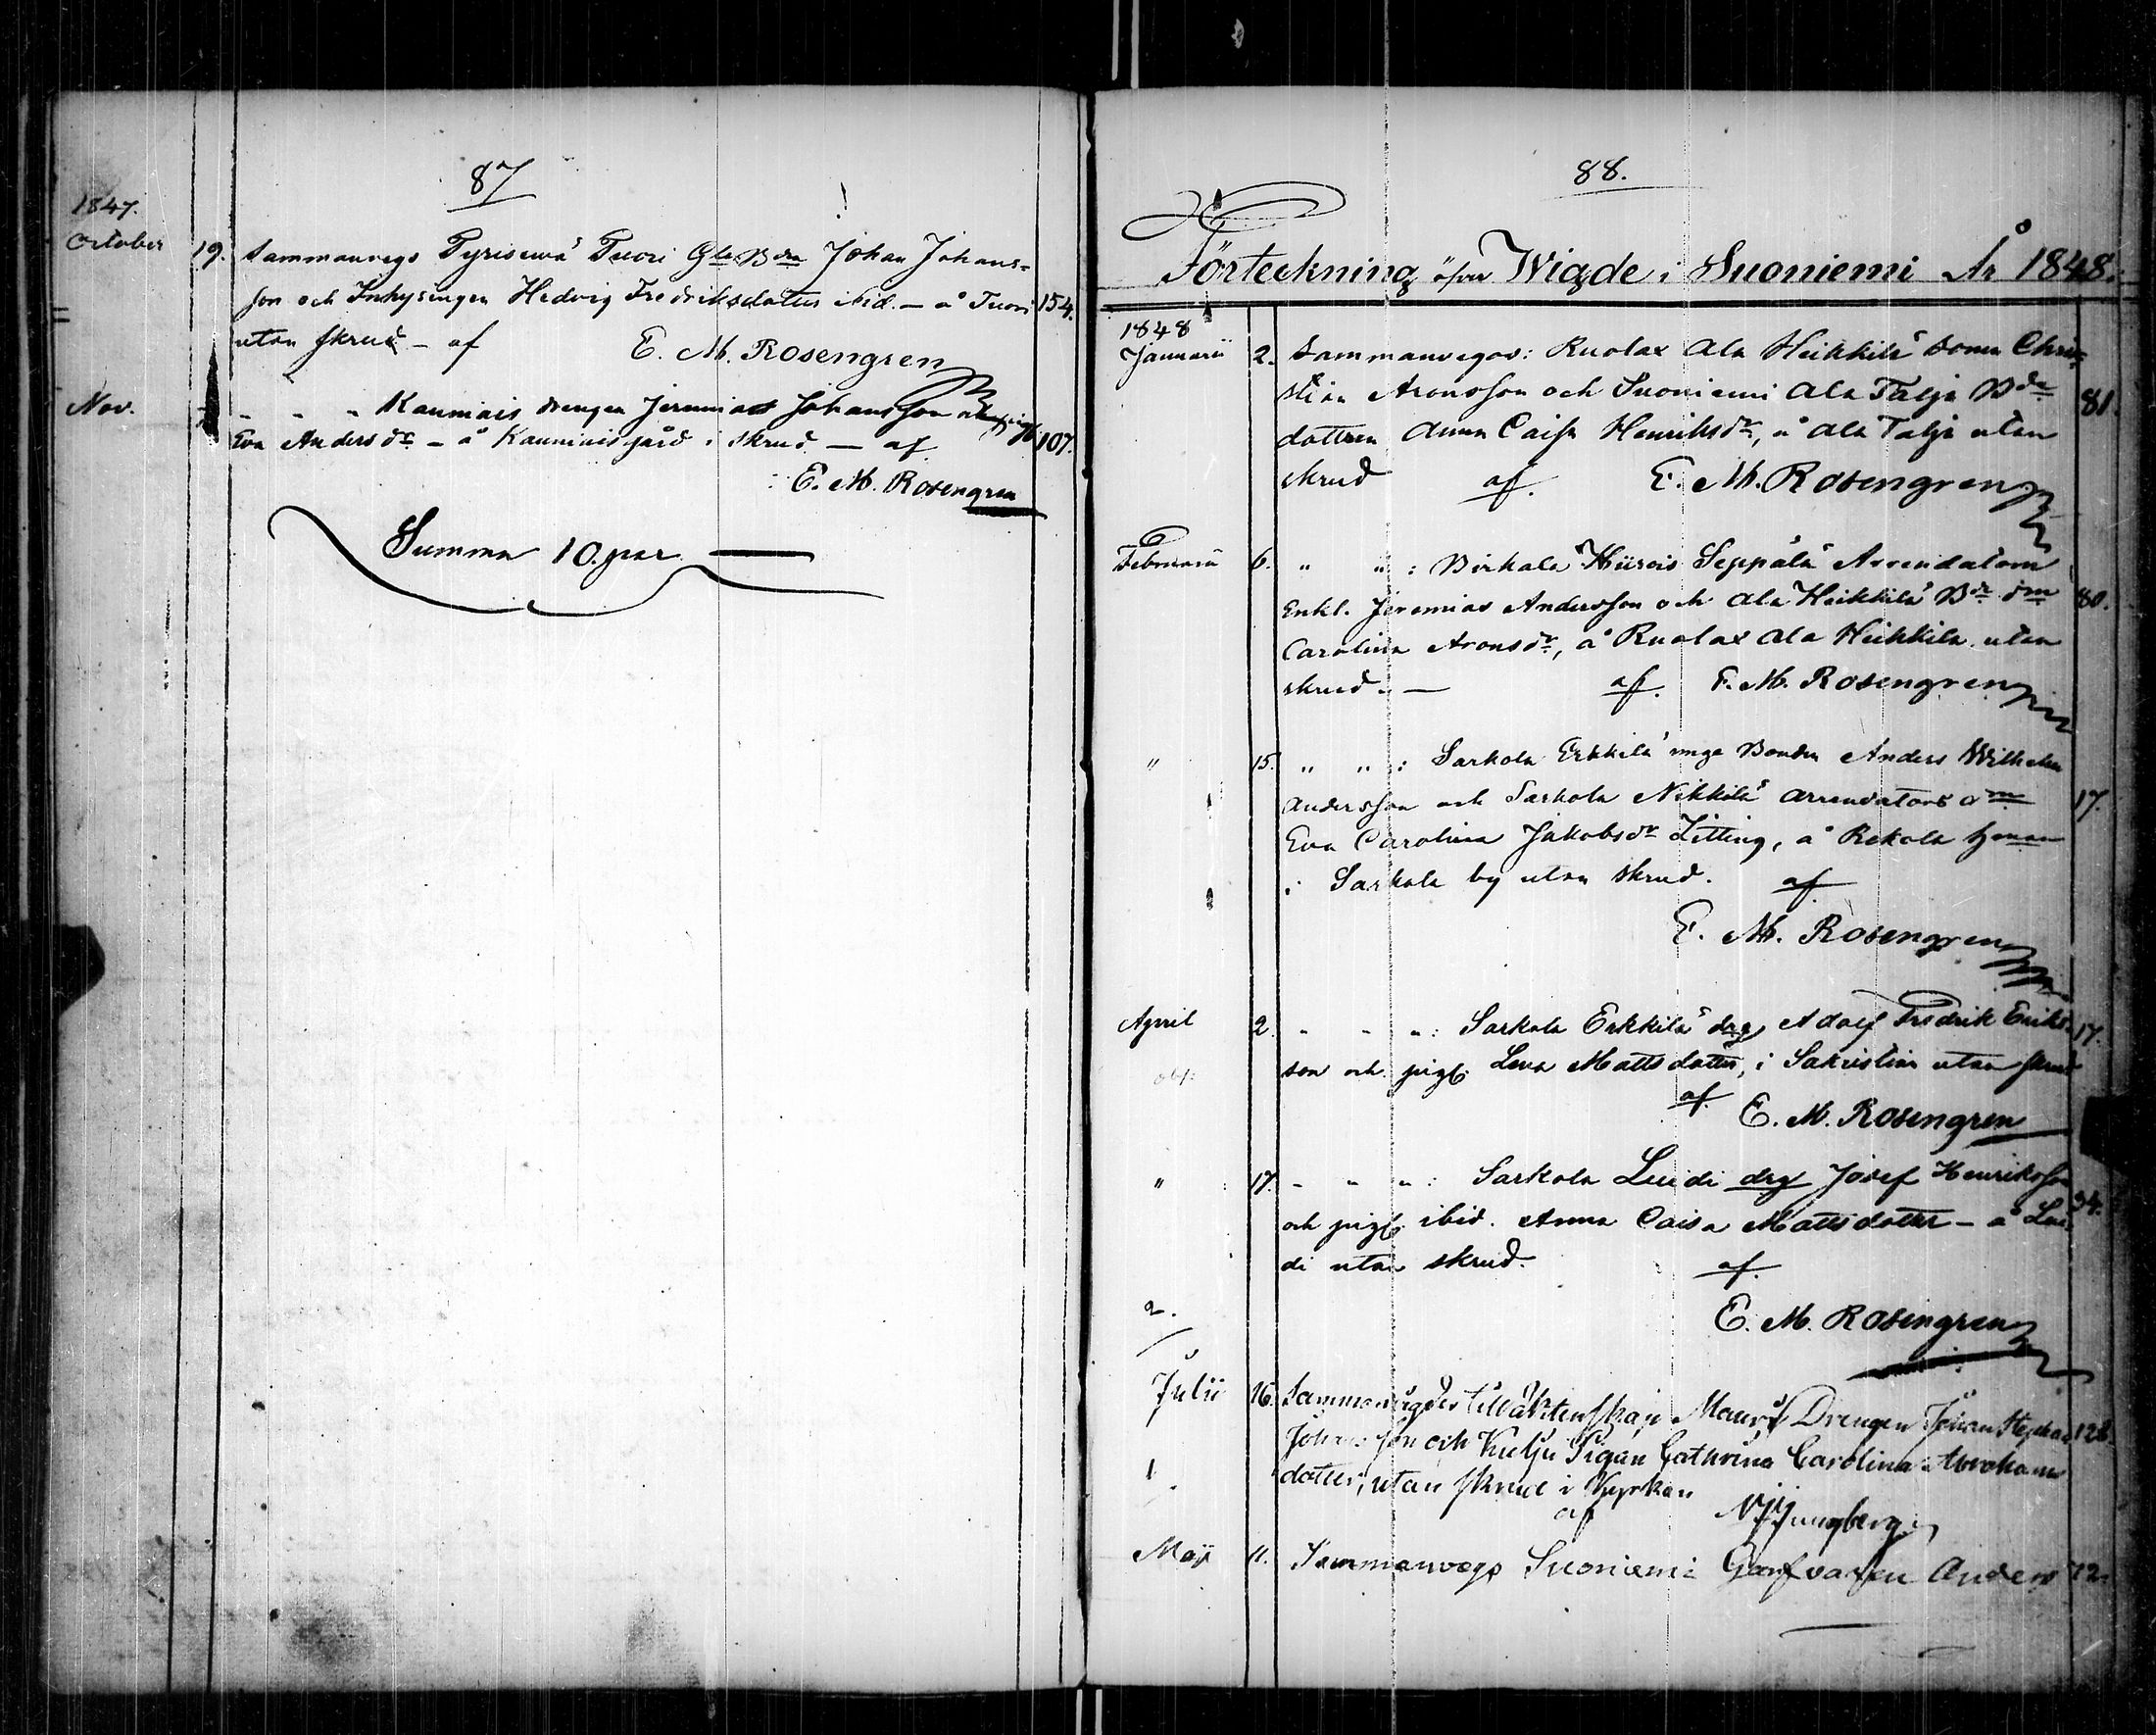 87
1847.
October 19. Sammanvegs Tyrisevä Tuori Gle Bdn Johan Johans-
son och Inhysingen Hedvig Fredriksdotter ibid. — å Tuori 154.
utan skrud — af E. M. Rosengren
Nov. " " " Kauniais drengen Jeremias Johansson och pig.
Eva Andersdr — å Kauniais gård i skrud — af 107.
E. M. Rosengren
Summa 10. par
88.
Förteckning öfver Wigde i Suoniemi År 1848.
1848
Januarii 2. Sammanvegos: Kuolax Ala Heikkilä sonen Chri-
stian Aronsson och Suoniemi Ala Talja Bde 81.
dottren Anna Caisa Henriksdr, å Ala Talja utan
skrud af. E. M. Rosengren
Februarii 6. " " : Birkala Hiirois Seppälä Arrendatorn
Enkl. Jeremias Andersson och Ala Heikkilä Bde 80.
Carolina Aronsdr, å Kuolax Ala Heikkila utan
skrud. — af. E. M. Rosengren
" 15. " " : Sarkola Erkkilä unge Bonden Anders Wilhelm
Andersson och Sarkola Nikkilä arrendators 17.
Eva Carolina Jakobsdr Litting, å Rekola hman
i Sarkola by utan skrud. af
E. M. Rosengren
April 2. " " " : Sarkola Erkkilä drg Adolf Fredrik Eriks- 17.
obs: son och pig. Lena Matts dotter, i Sakristian utan skrud
af. E. M. Rosengren
" 17. " " " : Sarkola Luidi drg Josef Henriksson
och pig. ibid. Anna Caisa Matts dotter — å Lui- 34.
di utan skrud. af.
2. E. M. Rosengren
Julii 16. Sammanvigdes till äktenskap Drengen Johan Stephan 128.
Johansson och Kulju Pigan Cathrina Carolina Abrahams
1 dotter, utan skrud i Kyrkan
af N Ljungberg
Maji 11. Sammanvegs Suoniemi Garfvaren Anders 72.